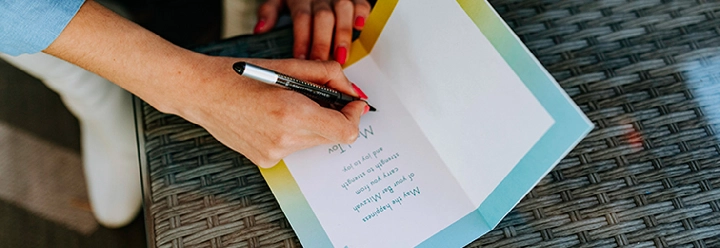 May the happiness
of your Bar Mitzvah
carry you from
strength to strength
and joy to joy
Tov